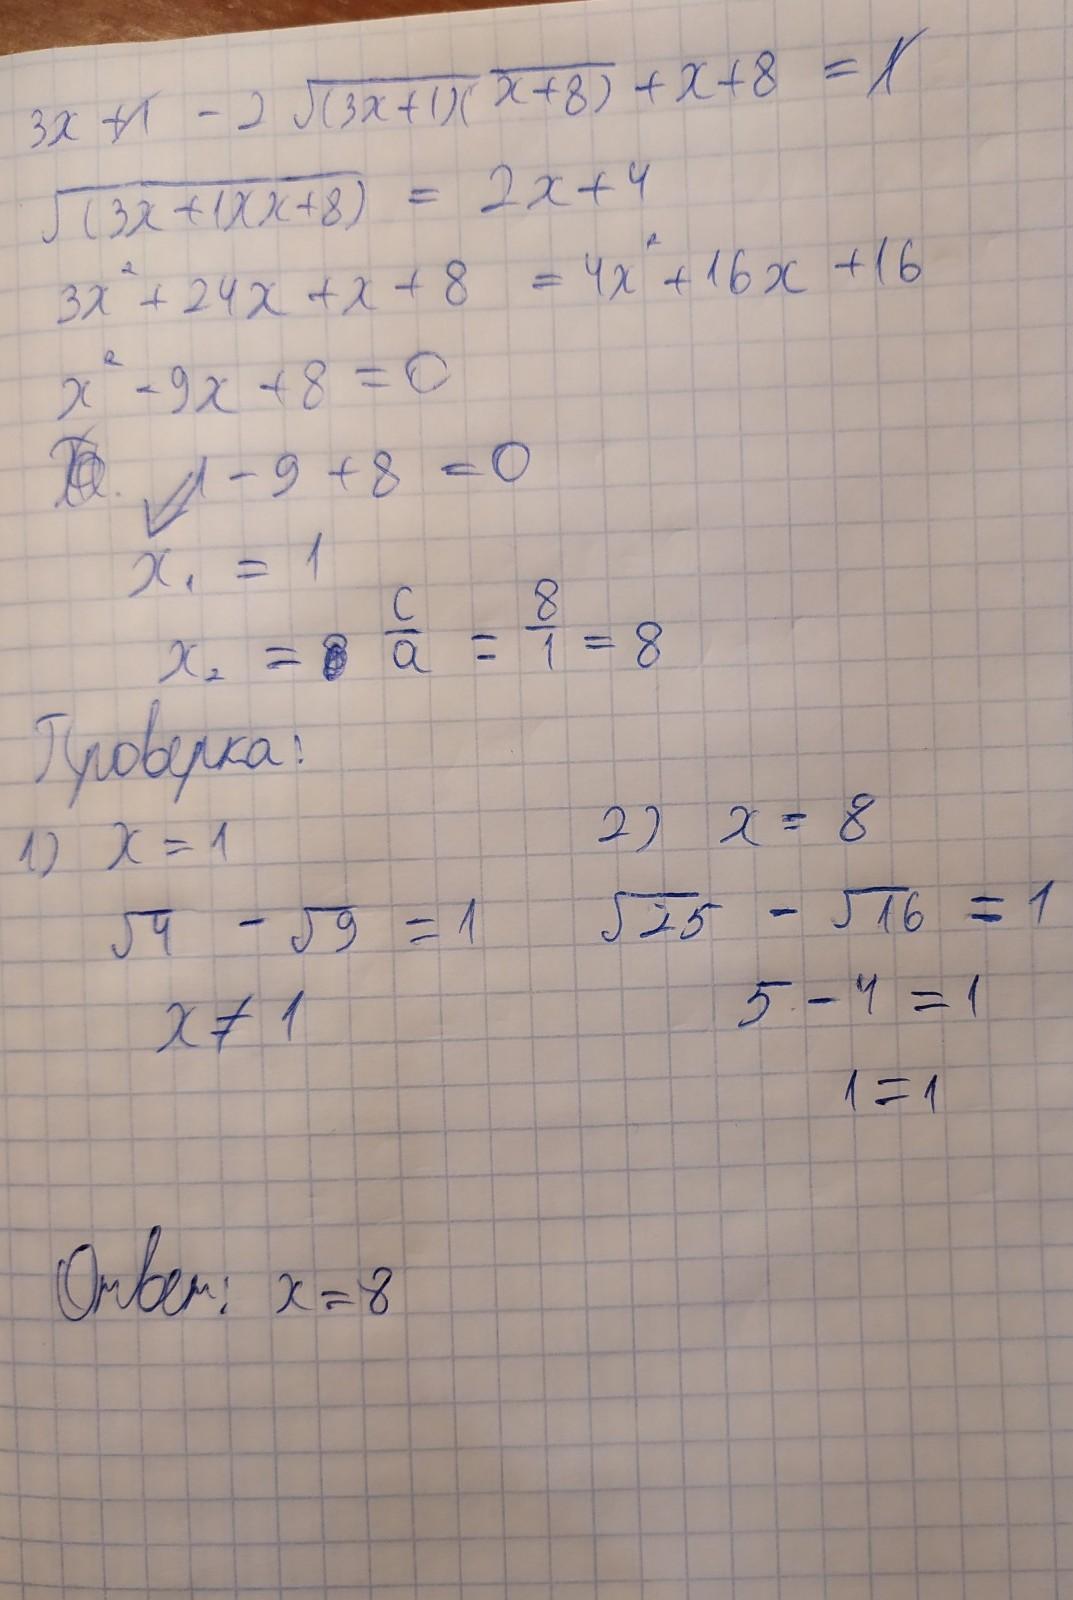 3x + 1 - 2 √(3x+1)(x+8) + x + 8 = 1
√(3x+1)(x+8) = 2x+4
3x² + 24x + x + 8 = 4x² + 16x + 16
x² - 9x + 8 = 0
1 - 9 + 8 = 0
x₁ = 1
x₂ = c/a = 8/1 = 8
Проверка:
1) x = 1
√4 - √9 = 1
x ≠ 1
2) x = 8
√25 - √16 = 1
5 - 4 = 1
1 = 1
Ответ: x = 8